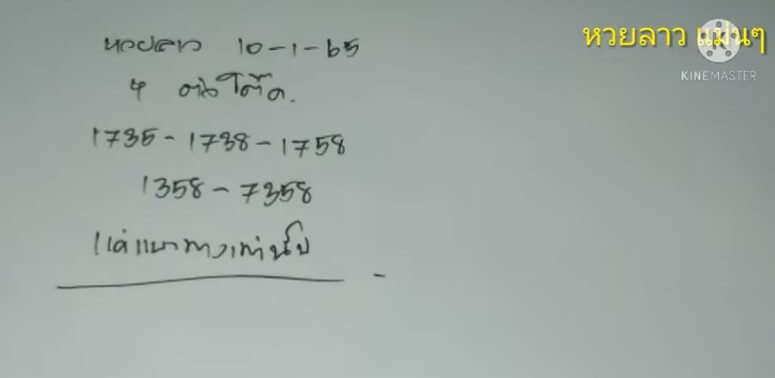 หวยลาว แม่นๆ
KINEMASTER
หวยลาว 10-1-65
4 ตัวโต๊ด.
1735-1738-1758
1358-7358
แค่แนวทางเท่านั้น